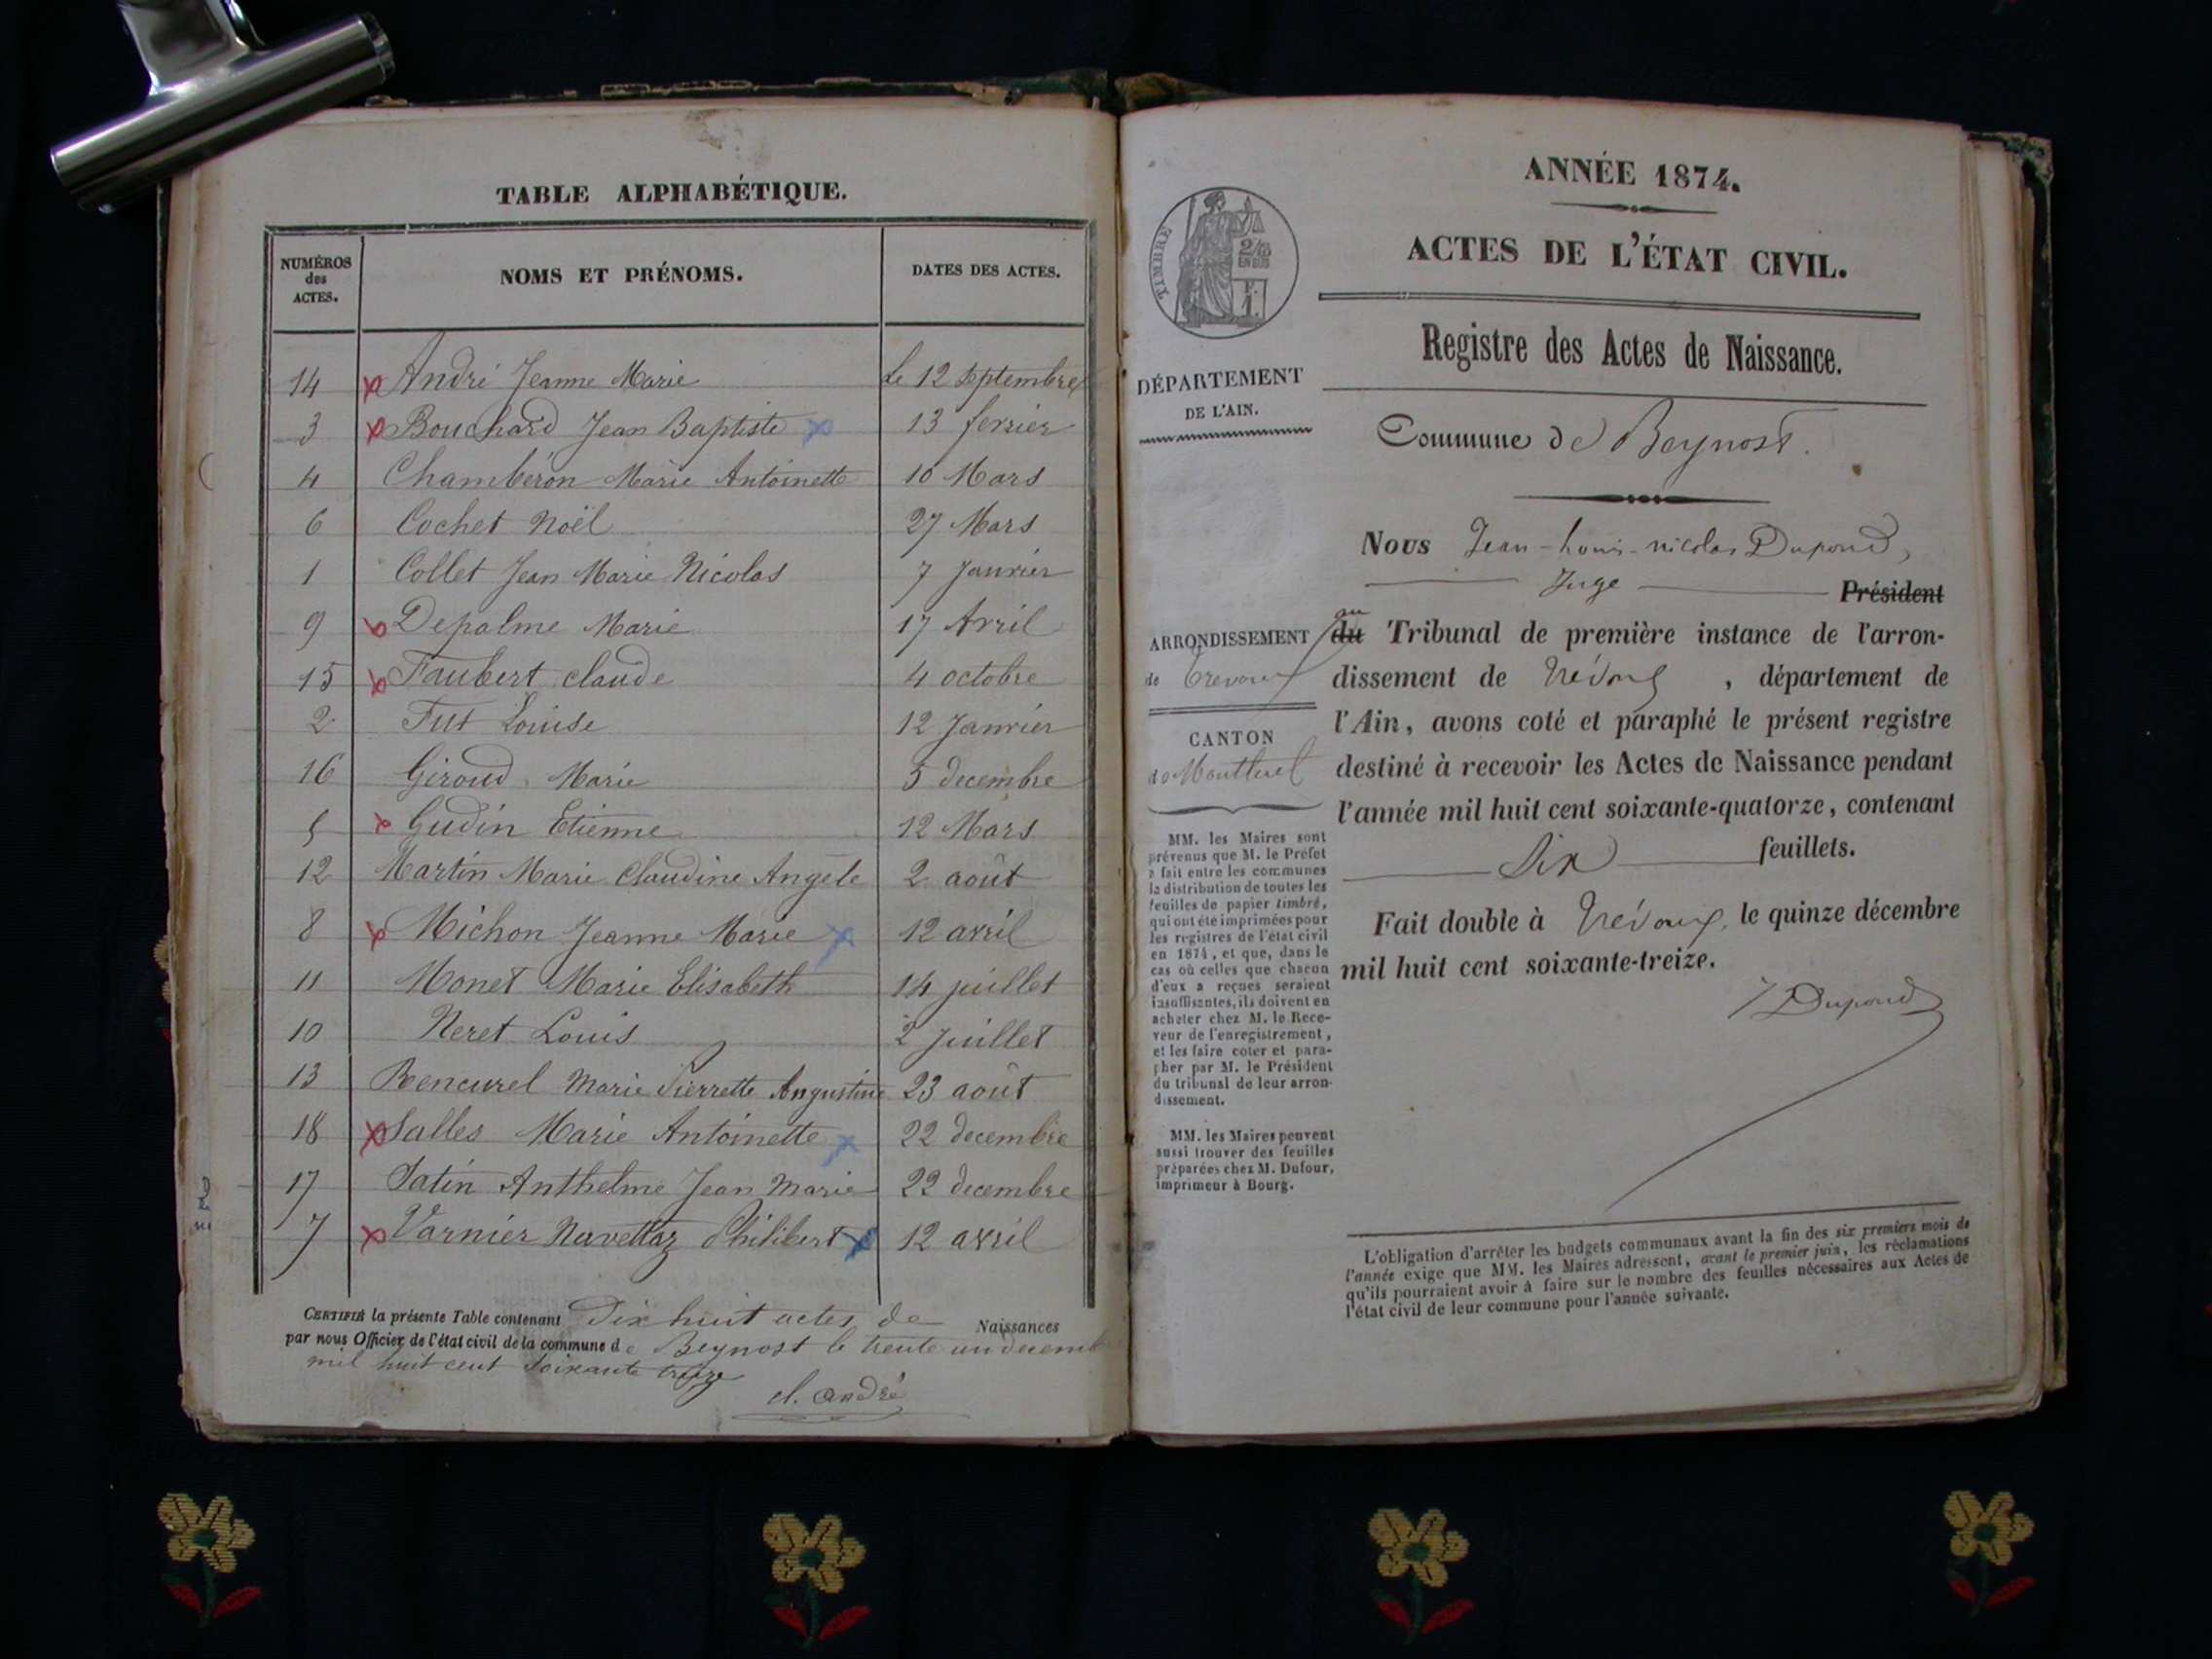 TABLE ALPHABÉTIQUE.
NUMÉROS des ACTES.
NOMS ET PRÉNOMS.
DATES DES ACTES.
14 André Jeanne Marie le 12 septembre
3 Bouchard Jean Baptiste 13 fevrier
4 Chambéron Marie Antoinette 10 Mars
6 Cochet Noël 27 Mars
1 Collet Jean Marie Nicolas 7 Janvier
9 Depalme Marie 17 Avril
15 Faubert claude 4 octobre
2 Fut Louise 12 Janvier
16 Giroud Marie 5 decembre
5 Gudin Etienne 12 Mars
12 Martin Marie Claudine Angèle 2 août
8 Michon Jeanne Marie 12 avril
11 Monet Marie Elisabeth 14 juillet
10 Neret Louis 2 Juillet
13 Rencurel Marie Pierrette Augustine 23 août
18 Salles Marie Antoinette 22 decembre
17 Satin Anthelme Jean Marie 22 decembre
7 Varnier Navettaz Philibert 12 avril
CERTIFIÉ la présente Table contenant Dix huit actes de Naissances
par nous Officier de l'état civil de la commune de Beynost le trente un decemb
mil huit cent soixante treize
cl. andré
ANNÉE 1874.
ACTES DE L'ÉTAT CIVIL.
TIMBRE
2/10
EN SUS
F.
1.
Registre des Actes de Naissance.
DÉPARTEMENT
DE L'AIN.
Commune de Beynost.
Nous Jean-Louis-Nicolas Dupond,
Juge Président
ARRONDISSEMENT
de Trevoux
CANTON
de Montluel
au
du Tribunal de première instance de l'arron-
dissement de Trévoux, département de
l'Ain, avons coté et paraphé le présent registre
destiné à recevoir les Actes de Naissance pendant
l'année mil huit cent soixante-quatorze, contenant
Six feuillets.
Fait double à Trévoux, le quinze décembre
mil huit cent soixante-treize.
Dupond
MM. les Maires sont
prévenus que M. le Préfet
a fait entre les communes
la distribution de toutes les
feuilles de papier timbré,
qui ont été imprimées pour
les registres de l'état civil
en 1874, et que, dans le
cas où celles que chacun
d'eux a reçues seraient
insuffisantes, ils doivent en
acheter chez M. le Rece-
veur de l'enregistrement,
et les faire coter et para-
pher par M. le Président
du tribunal de leur arron-
dissement.
MM. les Maires peuvent
aussi trouver des feuilles
préparées chez M. Dufour,
imprimeur à Bourg.
L'obligation d'arrêter les budgets communaux avant la fin des six premiers mois de
l'année exige que MM. les Maires adressent, avant le premier juin, les réclamations
qu'ils pourraient avoir à faire sur le nombre des feuilles nécessaires aux Actes de
l'état civil de leur commune pour l'année suivante.